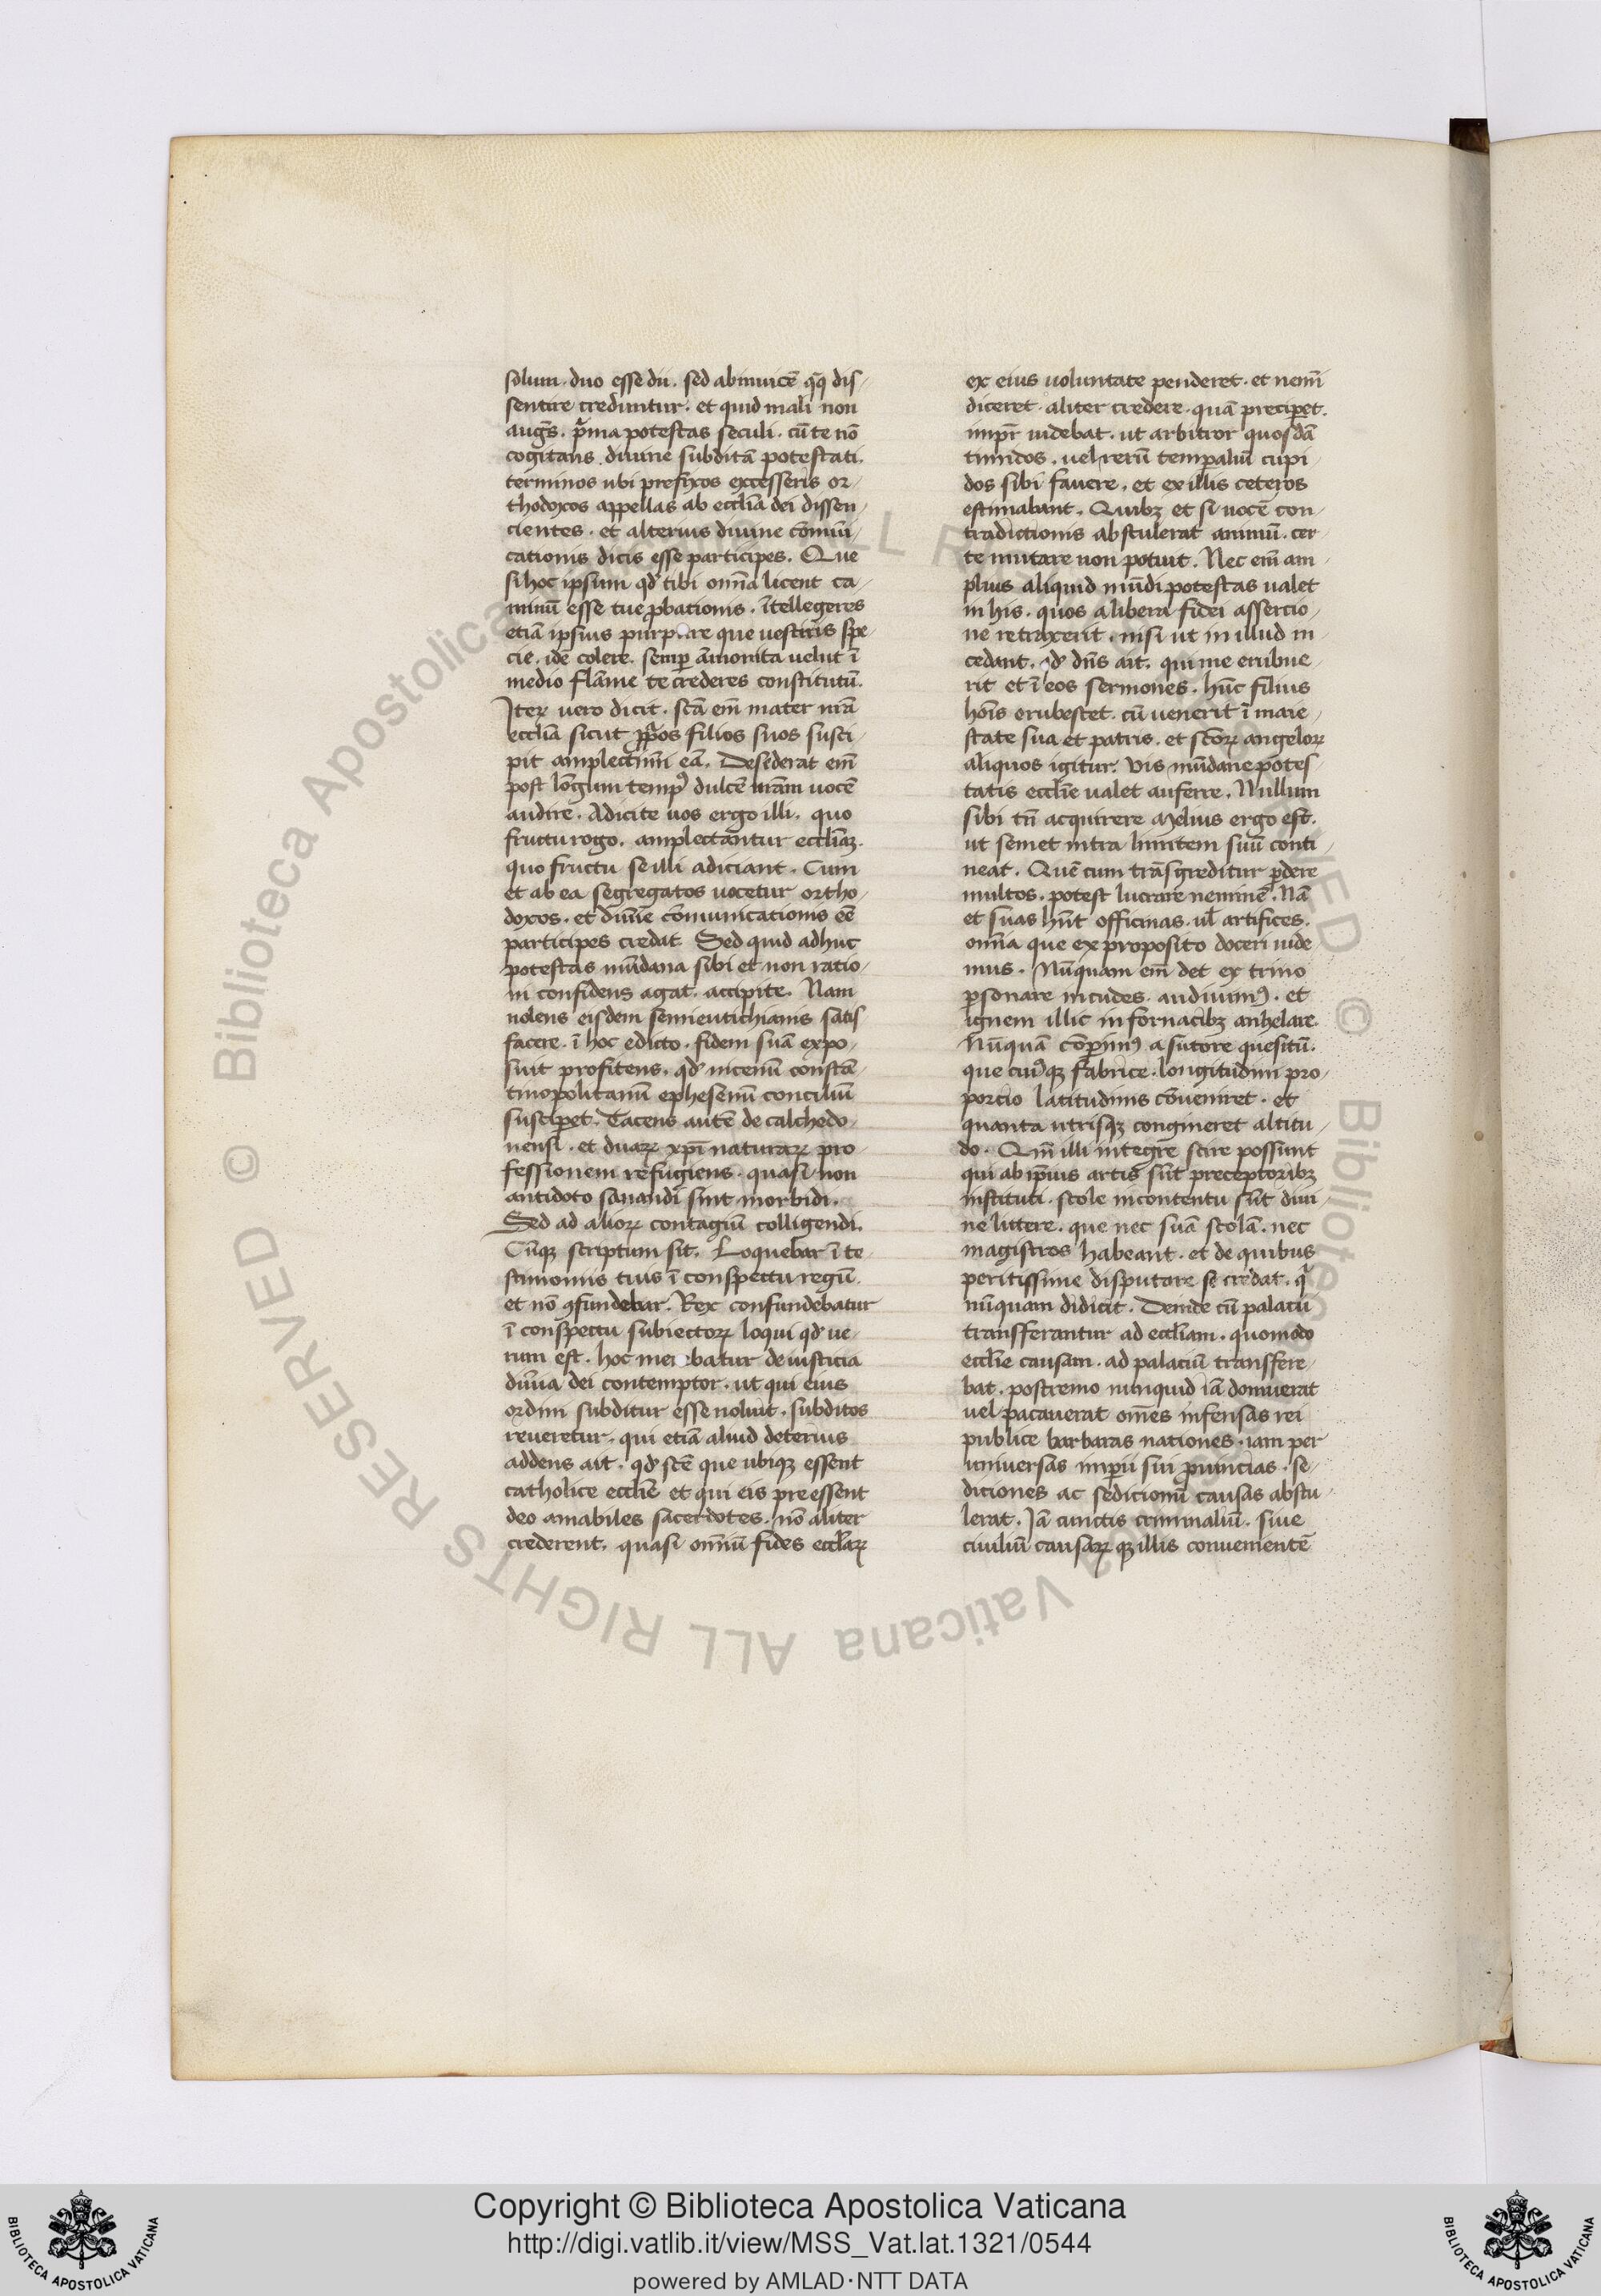 solum · duo esse dii . sed abinuicē qq̄ dis-
sentire creduntur . et quid mali non
augs̄ . p̄ma potestas seculi . cū te nō
cogitans . diuine subditā potestati .
terminos ubi prefixos excesseris or-
thodoxos appellas ab eccl̄ia dei dissen-
cientes . et alterius diuine cōmūi-
cationis dicis esse participes . Que
si hoc ipsum qd̄ tibi om̄ia licent ca-
minū esse tue p̄bationis . ītellegeres
etiā ipsius purpure que uestiris spe-
cie . idē colere . semp̄ āmonita uelut ī
medio flāme te crederes constitutū .
Iteꝝ uero dicit . sc̄a em̄ mater nr̄a
eccl̄ia sicut pp̄os filios suos susci-
pit amplectimī eā . Desiderat em̄
post lōgum tempꝰ dulcē ur̄am uocē
audire . Adicite uos ergo illi . quo
fructu rogo . amplectantur eccl̄iaꝫ .
quo fructu se illi adiciant . Cum
et ab ea segregatos uocetur ortho-
doxos . et diuīe cōmunicationis eē
participes credat Sed quid adhuc
potestas mūdana sibi et non ratio-
ni confidens agat . accipite . Nam
uolens eisdem semieutichianis satis
facere . ī hoc edicto . fidem suā expo-
suit profitens . qd̄ nicenū constā-
tinopolitanū ephesenū conciliū
suscip̄et . Tacens autē de calchedo-
nensi . et duaꝝ xp̄i naturaꝝ pro-
fessionem refugiens . quasi non
antidoto sanandi sint morbidi .
Sed ad alioꝝ contagiū colligendi .
Cūqꝫ scriptum sit . Loquebar ī te-
stimoniis tuis ī conspectu regū .
et nō ꝯfundebar . Rex confundebatur
ī conspectu subiectoꝝ loqui qd̄ ue-
rum est . hoc merebatur de iusticia
diuīa dei contemptor . ut qui eius
ordini subditur esse noluit . subditos
reueretur . qui etiā aliud deterius
addens ait . qd̄ sc̄e que ubiqꝫ essent
catholice eccl̄ie et qui eis preessent
deo amabiles sacerdotes . nō aliter
crederent . quasi om̄iū fides eccl̄aꝝ
ex eius uoluntate penderet . et nemī
diceret . aliter credere . quā precip̄et .
imp̄r uidebat . ut arbitror quosdā
timidos . uel rerū temp̄aliū cupi-
dos sibi fauere . et ex illis ceteros
estimabant . Quibꝫ et si uocē con-
tradictionis abstulerat animū . cer-
te mutare non potuit . Nec em̄ am-
plius aliquid mūdi potestas ualet
in his . quos a libera fidei assercio-
ne retraxerit . nisi ut in illud in-
cedant . qd̄ dn̄s ait . qui me erubue-
rit et ī eos sermones . hūc filius
hōis erubescet . cū uenerit ī maie-
state sua et patris . et sc̄oꝝ angeloꝝ
aliquos igitur . vis mūdane potes-
tatis eccl̄ie ualet auferre . Nullum
sibi tn̄ acquirere melius ergo est .
ut semet intra limitem suū conti-
neat . Quē cum trāsgreditur p̄dere
multos . potest lucrare neminē . Nā
et suas hn̄t officinas . ul̄ artifices .
om̄ia que ex proposito doceri uide-
mus . Nūquam em̄ det ex trino
p̄sonare incudes . audiuimꝰ . et
ignem illic in fornacibꝫ anhelare .
Nūquā cōp̄imꝰ a sutore quesitū .
que cuiꝰqꝫ fabrice . longitudini pro-
porcio latitudinis cōueniret . et
quanta utrisqꝫ congineret altitu-
do . Qm̄ illi integre scire possunt
qui ab ip̄ius artis sūt preceptoribꝫ
instituti . scole incontentu sūt diui-
ne littere . que nec suā scolā . nec
magistros habeant . et de quibus
peritissime disputare se credat . q̄
nūquam didicit . Deinde cū palaciī
transferantur ad eccl̄iam . quomodo
eccl̄ie causam . ad palaciū transfere-
bat . postremo nunquid iā domuerat
uel pacauerat om̄es infensas rei
publice barbaras nationes . iam per
uniuersas imp̄ii sui p̄uincias . se-
diciones ac sedicionū causas abstu-
lerat . Iā cunctis criminaliū . siue
ciuiliū causaꝝ qꝫ illis conuenientē
Copyright © Biblioteca Apostolica Vaticana
http://digi.vatlib.it/view/MSS_Vat.lat.1321/0544
powered by AMLAD·NTT DATA
BIBLIOTECA APOSTOLICA VATICANA
BIBLIOTECA APOSTOLICA VATICANA
© Biblioteca Apostolica Vaticana ALL RIGHTS RESERVED